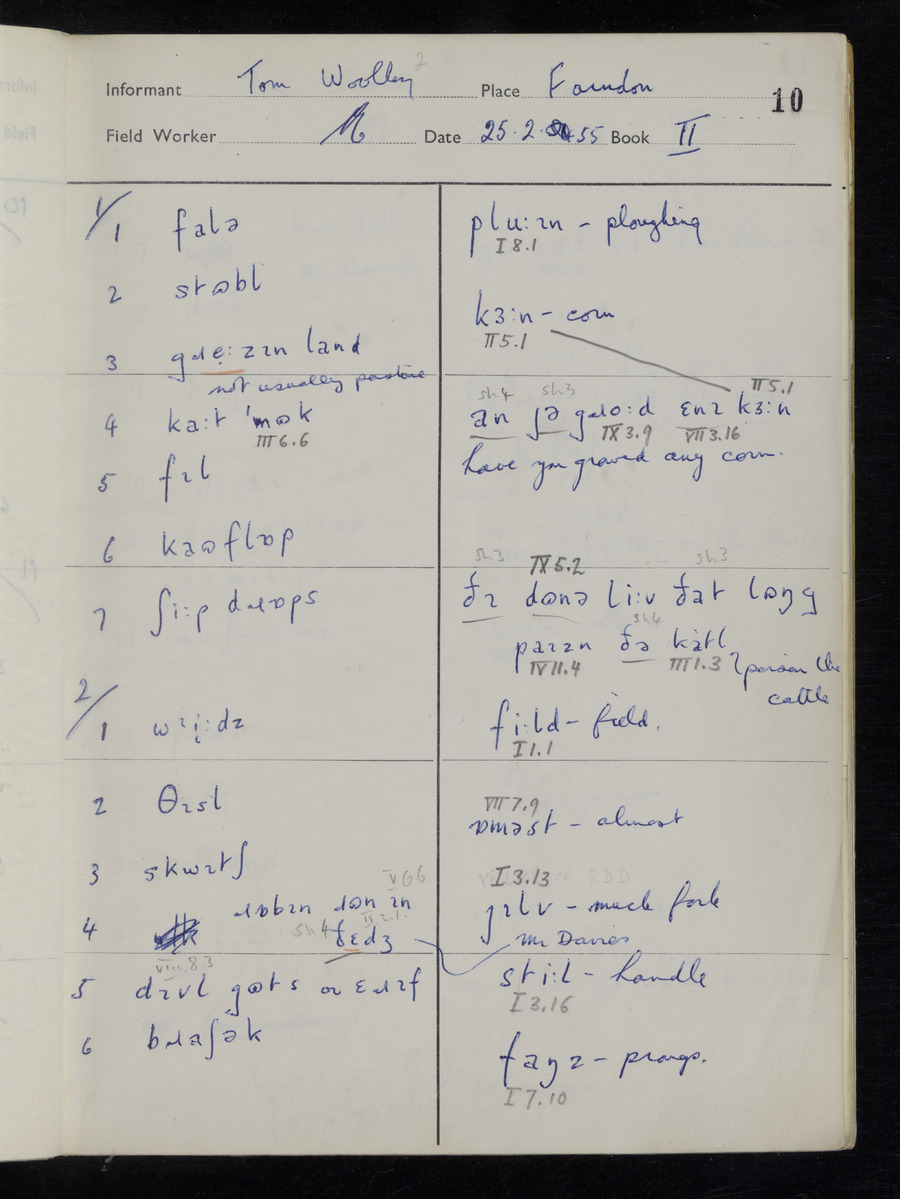 Informant Tom Woolley 2 Place Farndon 10
Field Worker Date 25.2.55 Book II
1/
1 falə
2 stɷbl
3 gɹẹ:zɪn land
not usually pasture
4 ka:t 'mɷk
III 6.6
5 fɪl
6 kaɷflɒp
7 ʃi:p dɹɒps
2/
1 wɪi̜:dz
2 θɪsl
3 skwɪtʃ
V 6 6
4 ɹɒbɪn ɹɷn ɪn
IX 2.1.
sh4 ðɛdʒ
VIII.8.3
5 dɪvl gɷts or ɛɹɪf
6 bɹaʃək
plu:ɪn – ploughing
I 8.1
kɜ:n – corn
II 5.1
II 5.1
sh4 sh3
an ʃə gɹo:d ɛnɪ kɜ:n
IX 3.9 VII 3.16
have you growed any corn.
sh3 IX 5.2 sh3
ðɪ dɷnə li:v ðat lɒŋg
sh4
paɪzn ðə katl
IV 11.4 III 1.3 poison the
cattle
fi:ld – field.
I 1.1
VII 7.9
ɒməst – almost
I 3.13 EDD
jɪlv – muck fork
Mr Davies
sti:l – handle
I 3.16
faŋz – prongs.
I 7.10